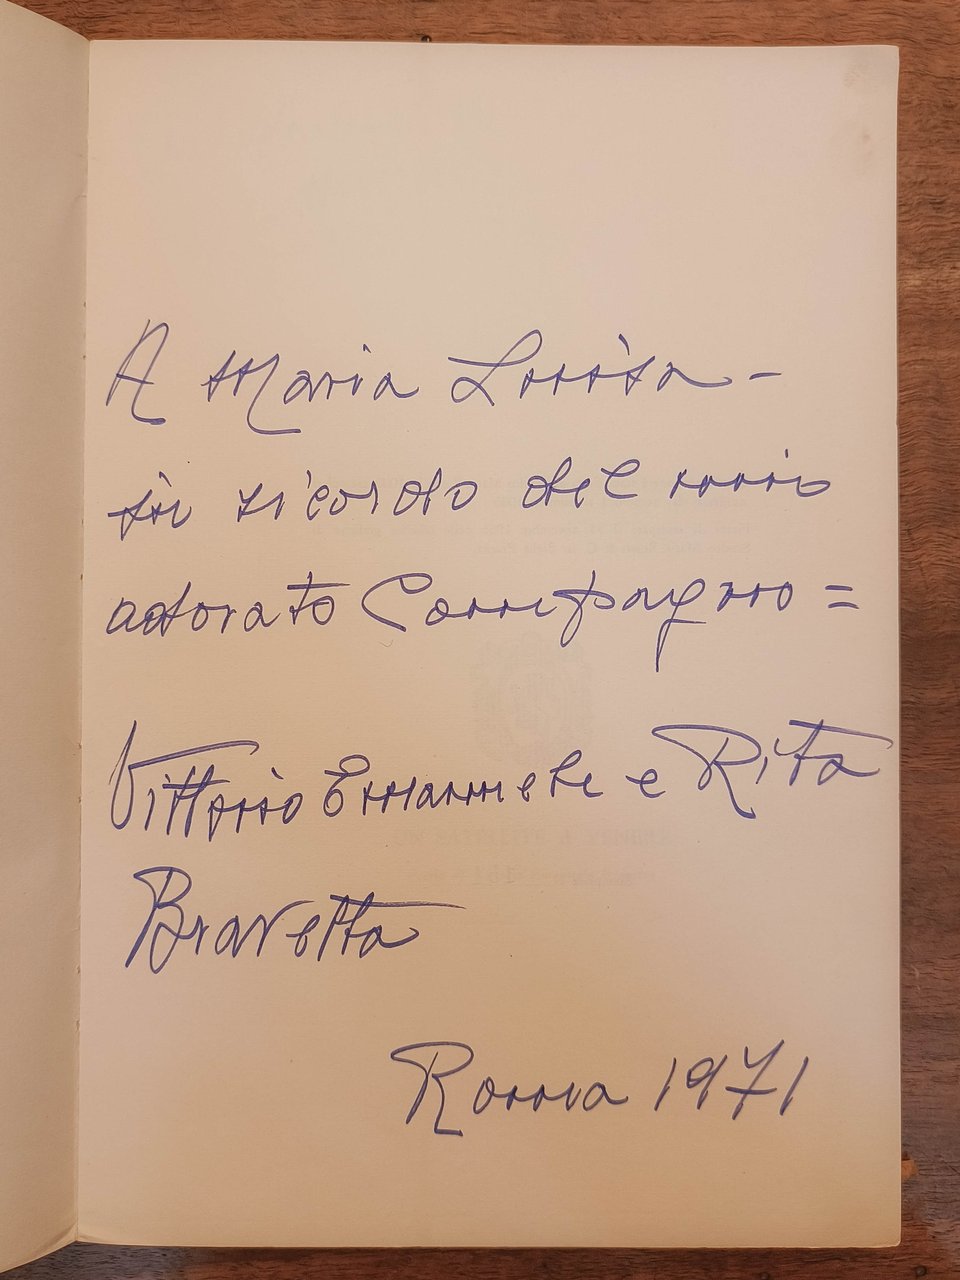 A Maria Luisa -
in ricordo del mio
adorato Compagno =
Vittorio Emanuele e Rita
Bravetta
Roma 1971